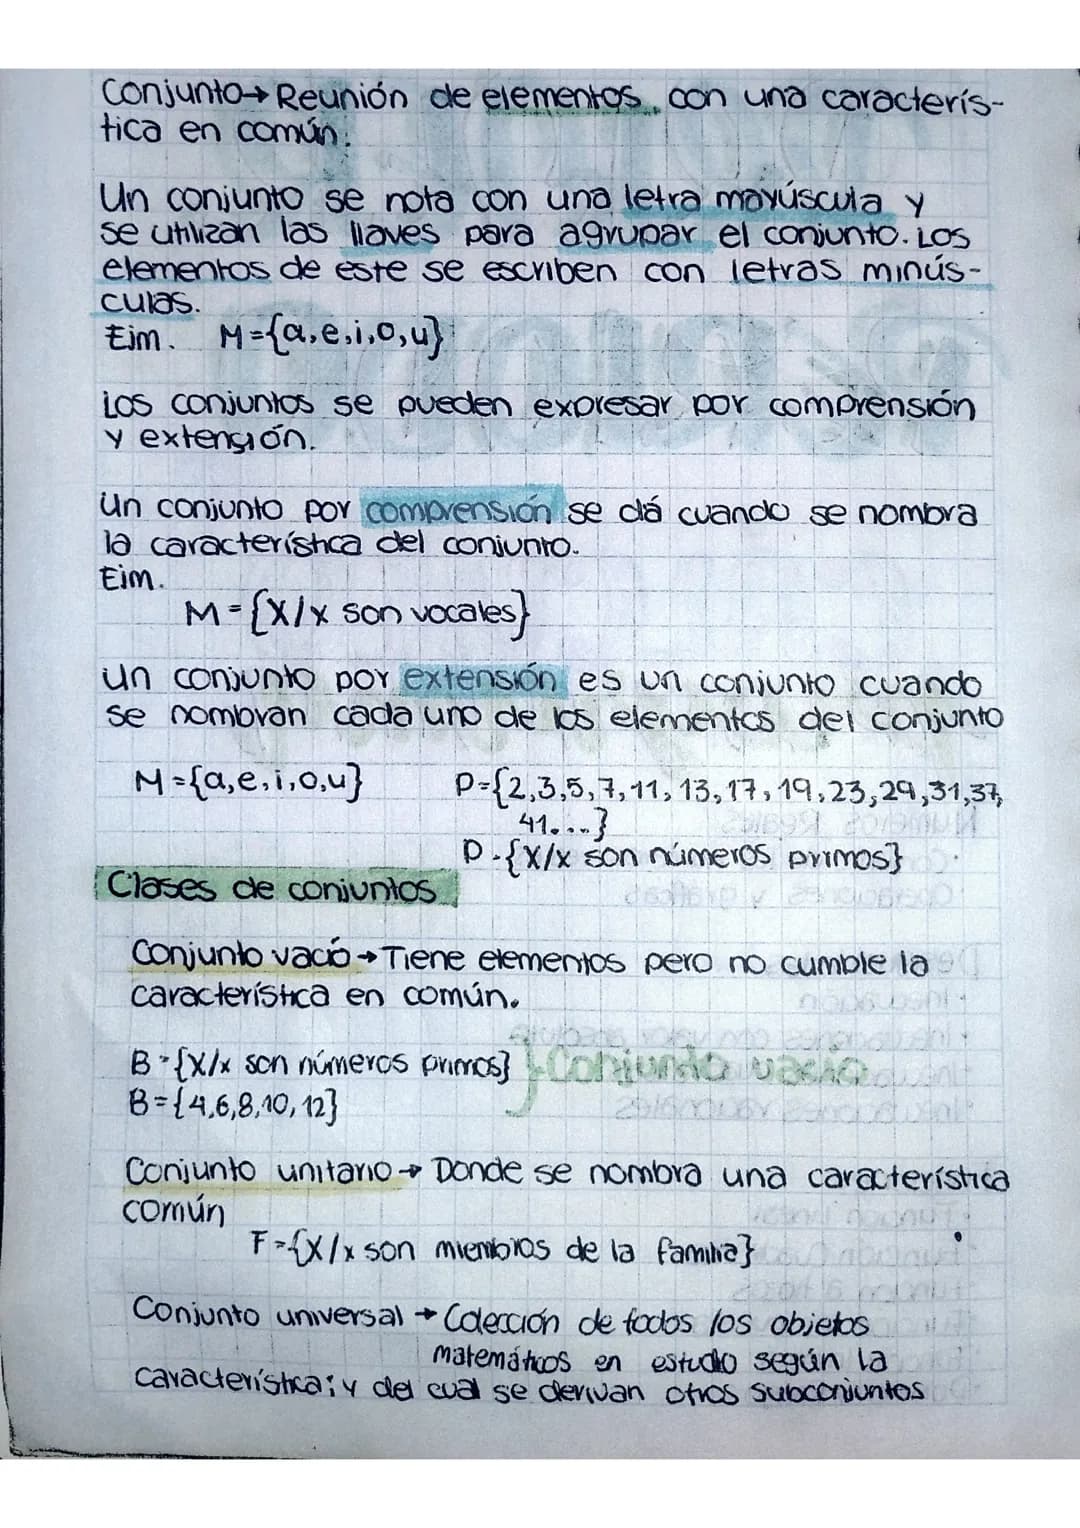 Conjunto→ Reunión de elementos, con una caracterís-
tica en común.
Un conjunto se nota con una letra mayúscula y
se utilizan las llaves para agrupar el conjunto. Los
elementos de este se escriben con letras minús-
culas.
Ejm. M={a,e,i,o,u}
Los conjuntos se pueden expresar por comprensión
y extensión.
Un conjunto por comprensión se dá cuando se nombra
la característica del conjunto.
Ejm.
M={x/x son vocales}
Un conjunto por extensión es un conjunto cuando
se nombran cada uno de los elementos del conjunto
M={a,e,i,o,u} P={2,3,5,7,11,13,17,19,23,29,31,37,
41...}
P={x/x son números primos}
Clases de conjuntos
Conjunto vacío→Tiene elementos pero no cumple la
característica en común.
B={x/x son números primos} } Conjunto vacío
B={4,6,8,10,12}
Conjunto unitario→ Donde se nombra una característica
común
F={x/x son miembros de la familia}
Conjunto universal → Colección de todos los objetos
matemáticos en estudio según la
característica; y del cual se derivan otros subconjuntos